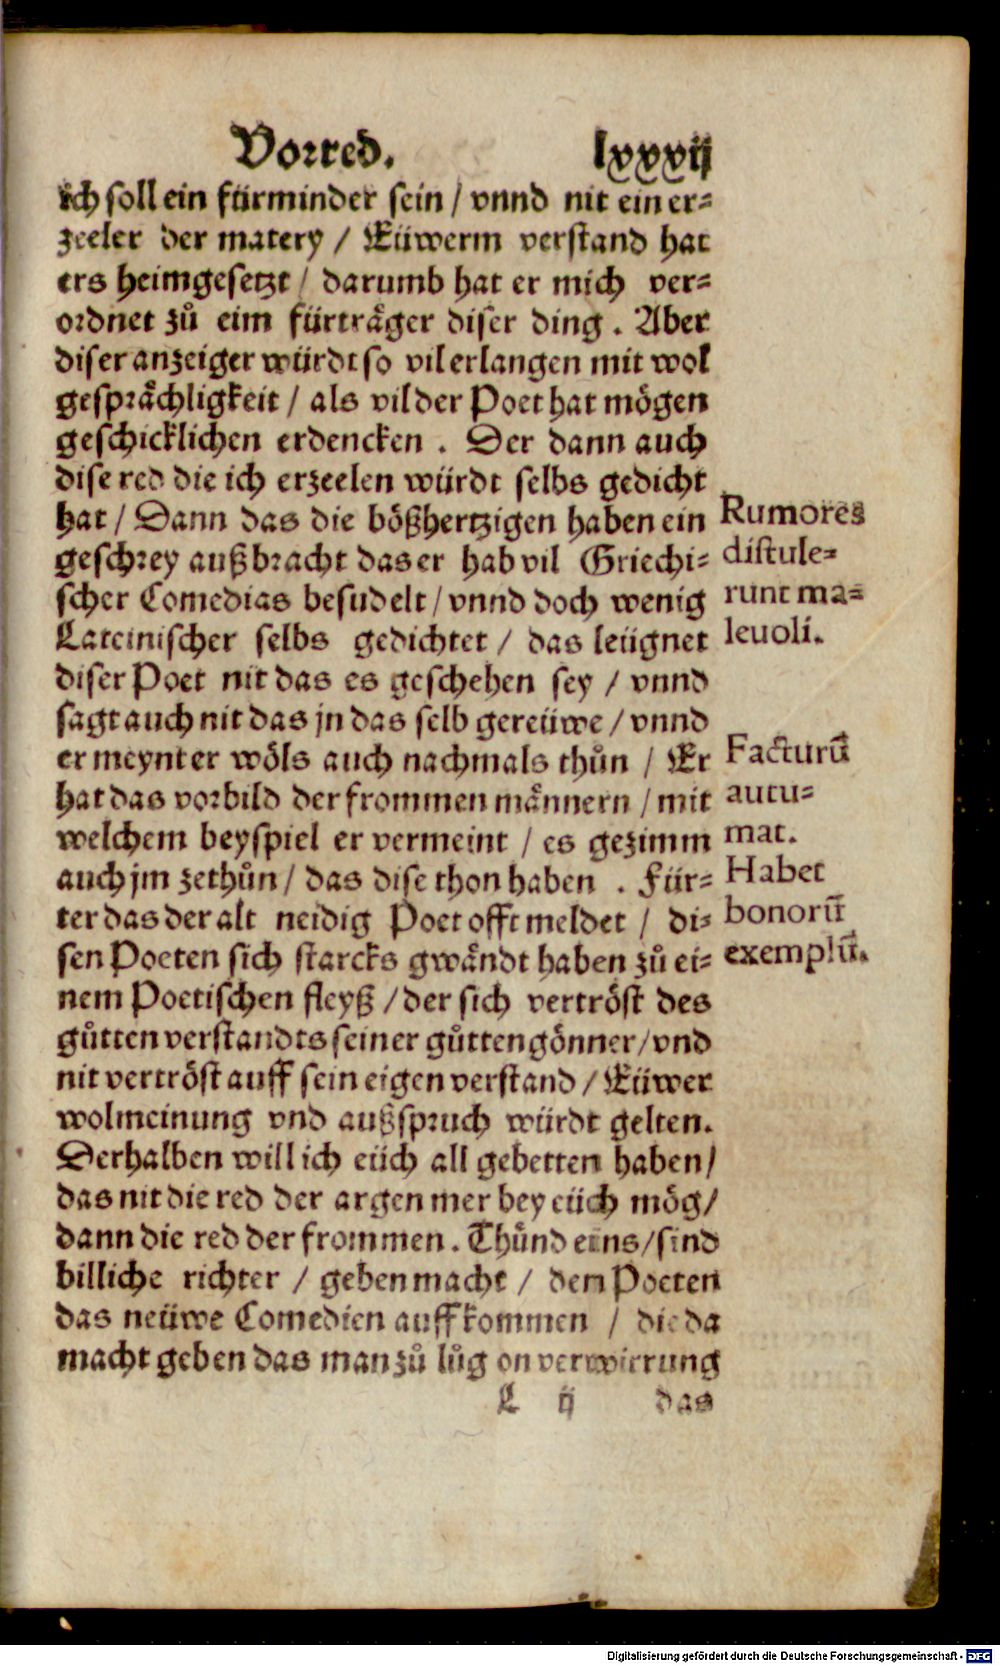 Vorred. lxxxij
ich soll ein fürminder sein / vnnd nit ein er-
zeeler der matery / Eüwerm verstand hat
ers heimgesetzt / darumb hat er mich ver-
ordnet zů eim fürträger diser ding . Aber
diser anzeiger würdt so vil erlangen mit wol
gesprächligkeit / als vil der Poet hat mögen
geschicklichen erdencken . Der dann auch
dise red die ich erzeelen würdt selbs gedicht
hat / Dann das die bößhertzigen haben ein
geschrey außbracht das er hab vil Griechi-
scher Comedias besudelt / vnnd doch wenig
Lateinischer selbs gedichtet / das leügnet
diser Poet nit das es geschehen sey / vnnd
sagt auch nit das jn das selb gereüwe / vnnd
er meynt er wöls auch nachmals thůn / Er
hat das vorbild der frommen männern / mit
welchem beyspiel er vermeint / es gezimm
auch jm zethůn / das dise thon haben . Für-
ter das der alt neidig Poet offt meldet / di-
sen Poeten sich starcks gwändt haben zů ei-
nem Poetischen fleyß / der sich vertröst des
gůtten verstandts seiner gůtten gönner / vnd
nit vertröst auff sein eigen verstand / Eüwer
wolmeinung vnd außspruch würdt gelten.
Derhalben will ich eüch all gebetten haben /
das nit die red der argen mer bey eüch mög /
dann die red der frommen . Thůnd eins / sind
billiche richter / geben macht / dem Poeten
das neüwe Comedien auffkommen / die da
macht geben das man zů lůg on verwirrung
L ij das
Rumores
distule-
runt ma-
leuoli.
Facturū
autu-
mat.
Habet
bonorū
exemplū.
Digitalisierung gefördert durch die Deutsche Forschungsgemeinschaft - DFG